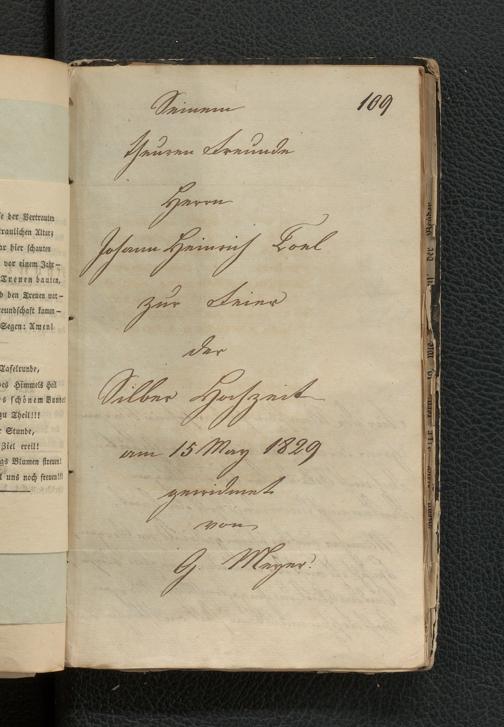 se der Vertrauten
traulichen Altar;
hr hier schauten
vor einem Jahr —
Treuen bauten,
b den Treuen vor —
reundschaft kamen —
Segen: Amen!
Tafelrunde,
des Himmels Heil
s schönem Bunde
zu Theil!!!
Stunde,
Ziel ereil!
gs Blumen streuen!
l uns noch freuen!!!
109
Seinem
theuren Freunde
Herrn
Johann Heinrich Toel
zur Feier
der
Silber Hochzeit
am 15 May 1829
gewidmet
von
G. Meyer.